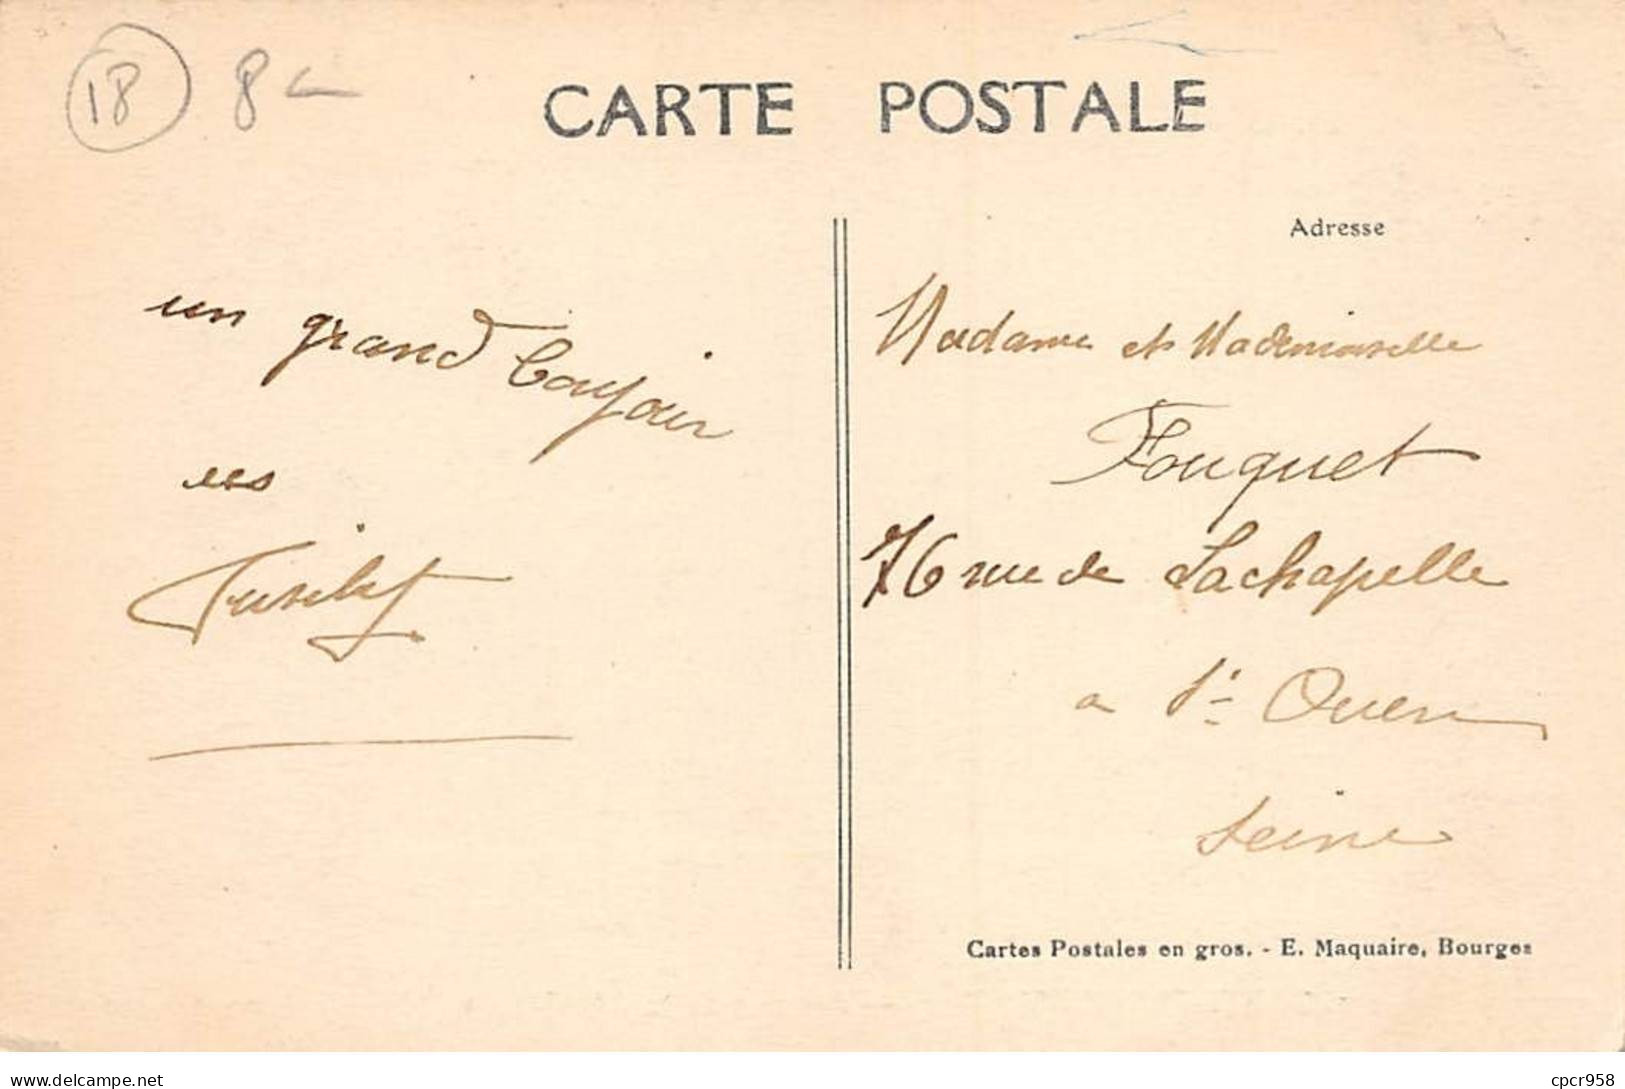 18 8
CARTE POSTALE
Adresse
un grand bonjour
Madame et Mademoiselle
Fouquet
76 rue de Lachapelle
a St Ouen
Seine
Cartes Postales en gros. - E. Maquaire, Bourges
delcampe.net
cpcr958